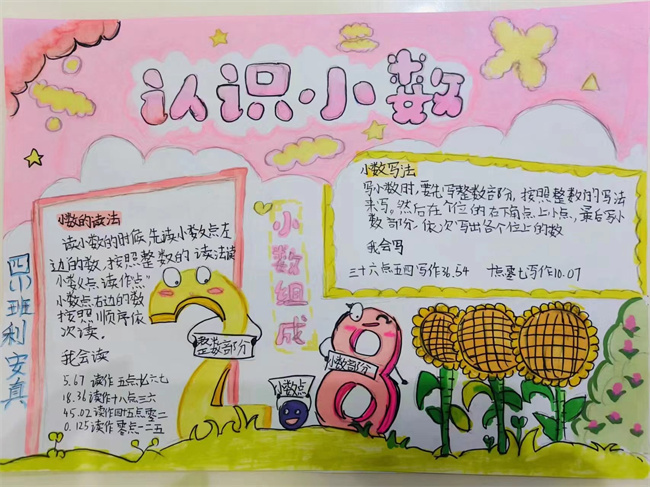 认识小数
小数的读法
读小数的时候,先读小数点左
边的数,按照整数的读法读
小数点读作点"
小数点右边的数
按照顺序依
次读.
我会读
5.67 读作 五点六七
18.36读作十八点三六
45.02读作四十五点零二
0.125读作零点一二五
小数组成
整数部分
小数点
小数部分
小数写法
写小数时,要先写整数部分,按照整数的写法
来写。然后在个位的右下角点上小点,最后写小
数部分,依次写出各个位上的数
我会写
三十六点五四写作36.54 十点零七写作10.07
班利安真